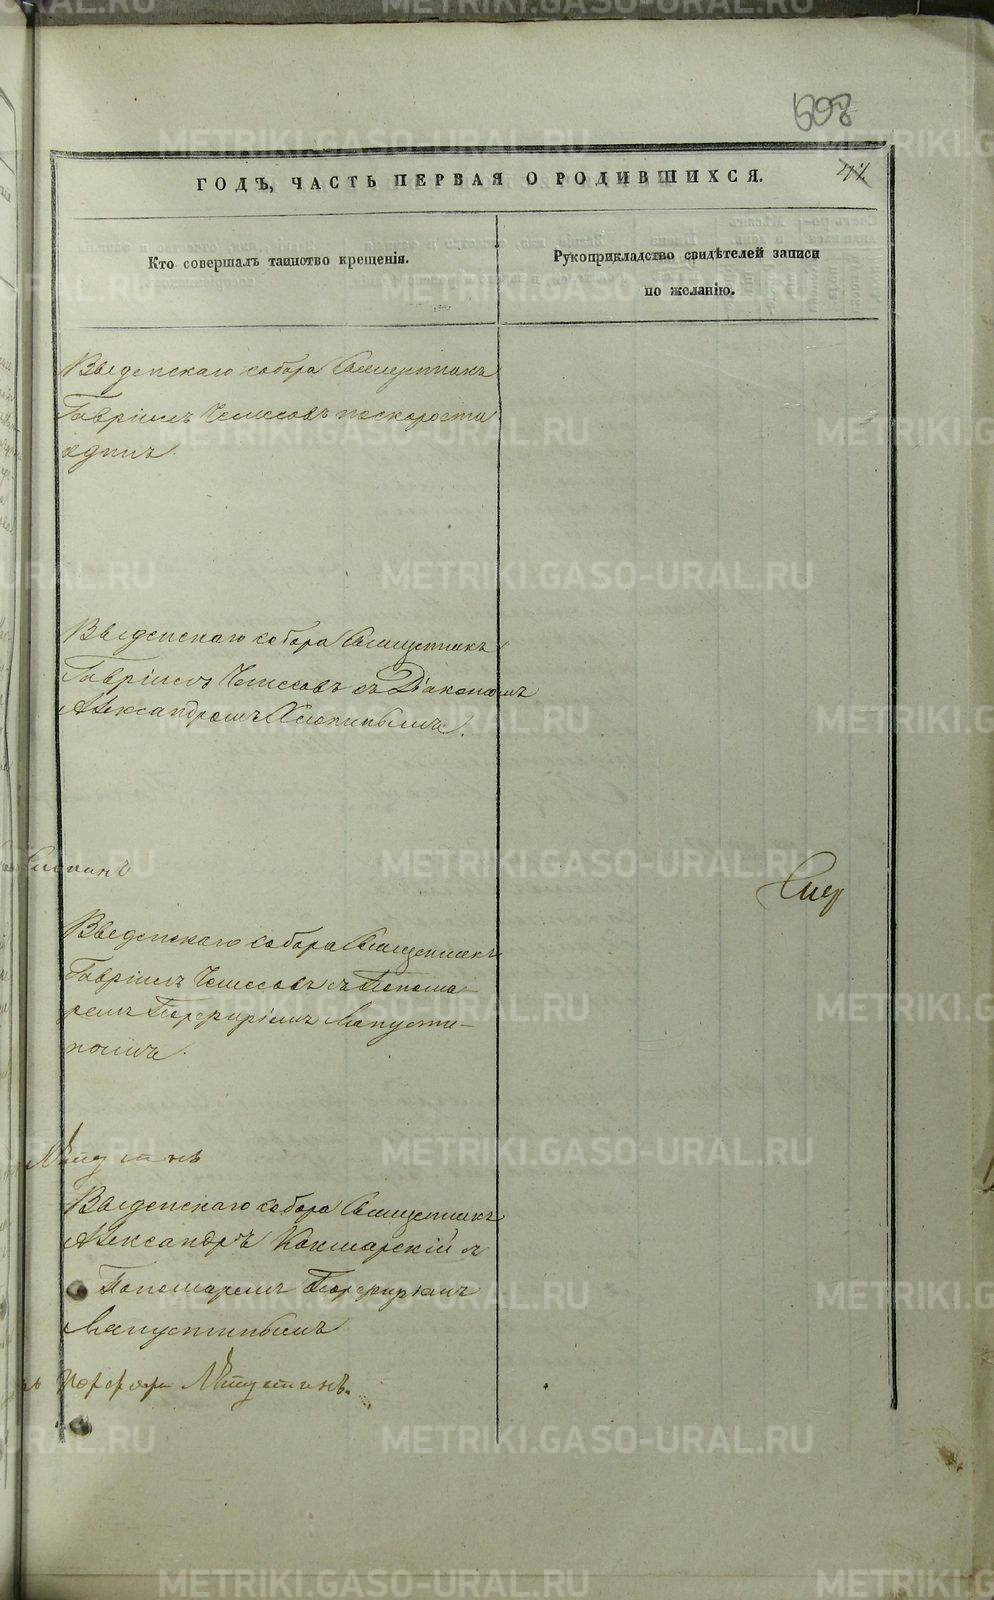 508
41
ГОДЪ, ЧАСТЬ ПЕРВАЯ О РОДИВШИХСЯ.
Кто совершалъ таинство крещенія.
Рукоприкладство свидѣтелей записи
по желанію.
Введенскаго собора Священникъ
Гавріилъ Чемесовъ поскорости
единъ.
Введенскаго собора Священникъ
Гавріилъ Чемесовъ съ Діакономъ
Александромъ Хлопинымъ.
Введенскаго собора Священникъ
Гавріилъ Чемесовъ съ Понома-
ремъ Порфиріемъ Лапусти-
нымъ.
Введенскаго собора Священникъ
Александръ Кокшарскій съ
Пономаремъ Порфиріемъ
Лапустинымъ
METRIKI.GASO-URAL.RU